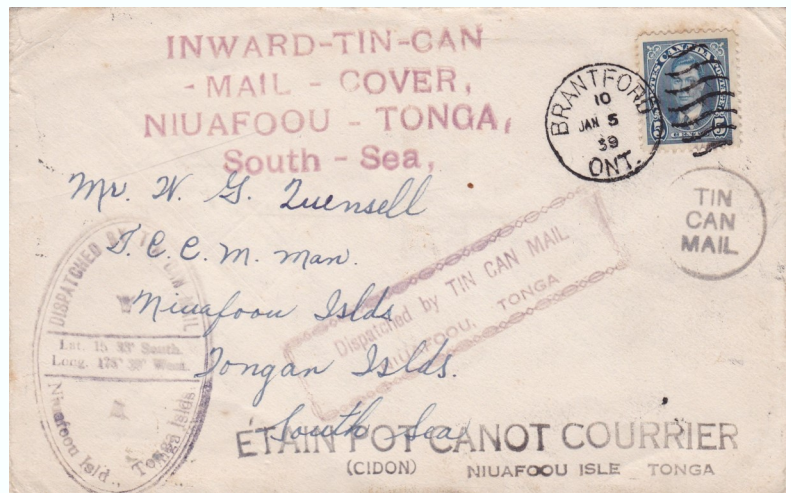 INWARD-TIN-CAN
- MAIL - COVER,
NIUAFOOU - TONGA,
South - Sea,
CANADA
BRANTFORD
10
JAN 5
39
ONT.
TIN
CAN
MAIL
Mr. W. G. Quensell
T. C. C. M. Man.
Niuafoou Islds
Tongan Islds.
South Sea
Dispatched by TIN CAN MAIL
NIUAFOOU, TONGA
DISPATCHED BY TIN CAN MAIL
Lat. 15 33' South.
Long. 175° 38' West.
Niuafoou Isld., Tonga Islds.
ÉTAIN POT CANOT COURRIER
(CIDON) NIUAFOOU ISLE TONGA